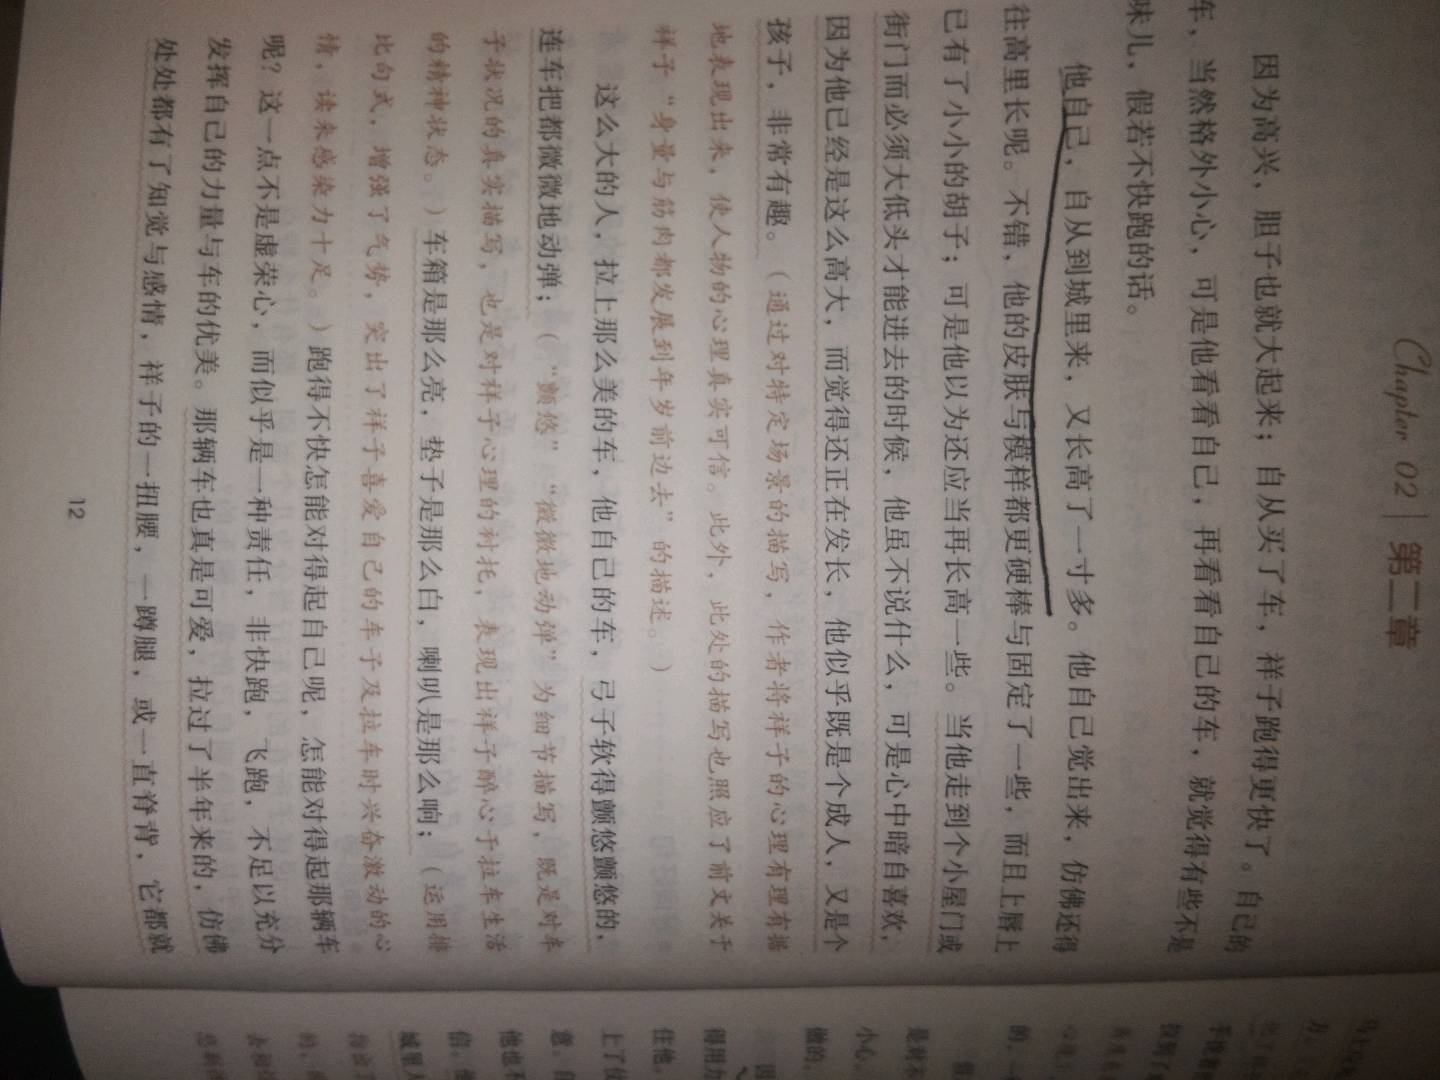 Chapter 02 | 第二章
因为高兴，胆子也就大起来；自从买了车，祥子跑得更快了。自己的
车，当然格外小心，可是他看看自己，再看看自己的车，就觉得有些不是
味儿，假若不快跑的话。
他自己，自从到城里来，又长高了一寸多。他自己觉出来，仿佛还得
往高里长呢。不错，他的皮肤与模样都更硬棒与固定了一些，而且上唇上
已有了小小的胡子；可是他以为还应当再长高一些。当他走到个小屋门或
街门而必须大低头才能进去的时候，他虽不说什么，可是心中暗自喜欢，
因为他已经是这么高大，而觉得还正在发长，他似乎既是个成人，又是个
孩子，非常有趣。（通过对特定场景的描写，作者将祥子的心理有理有据
地表现出来，使人物的心理真实可信。此外，此处的描写也照应了前文关于
祥子“身量与筋肉都发展到年岁前边去”的描述。）
这么大的人，拉上那么美的车，他自己的车，弓子软得颤悠颤悠的，
连车把都微微地动弹；（“颤悠”“微微地动弹”为细节描写，既是对车
子状况的真实描写，也是对祥子心理的衬托，表现出祥子醉心于拉车生活
的精神状态。）车箱是那么亮，垫子是那么白，喇叭是那么响；（运用排
比句式，增强了气势，突出了祥子喜爱自己的车子及拉车时兴奋激动的心
情，读来感染力十足。）跑得不快怎能对得起自己呢，怎能对得起那辆车
呢？这一点不是虚荣心，而似乎是一种责任，非快跑，飞跑，不足以充分
发挥自己的力量与车的优美。那辆车也真是可爱，拉过了半年来的，仿佛
处处都有了知觉与感情，祥子的一扭腰，一蹲腿，或一直脊背，它都就
12
因
得用力
住他。
上了仗
意。自
他也不
信。他
城里人
做的。
小心。
是对不
的，一